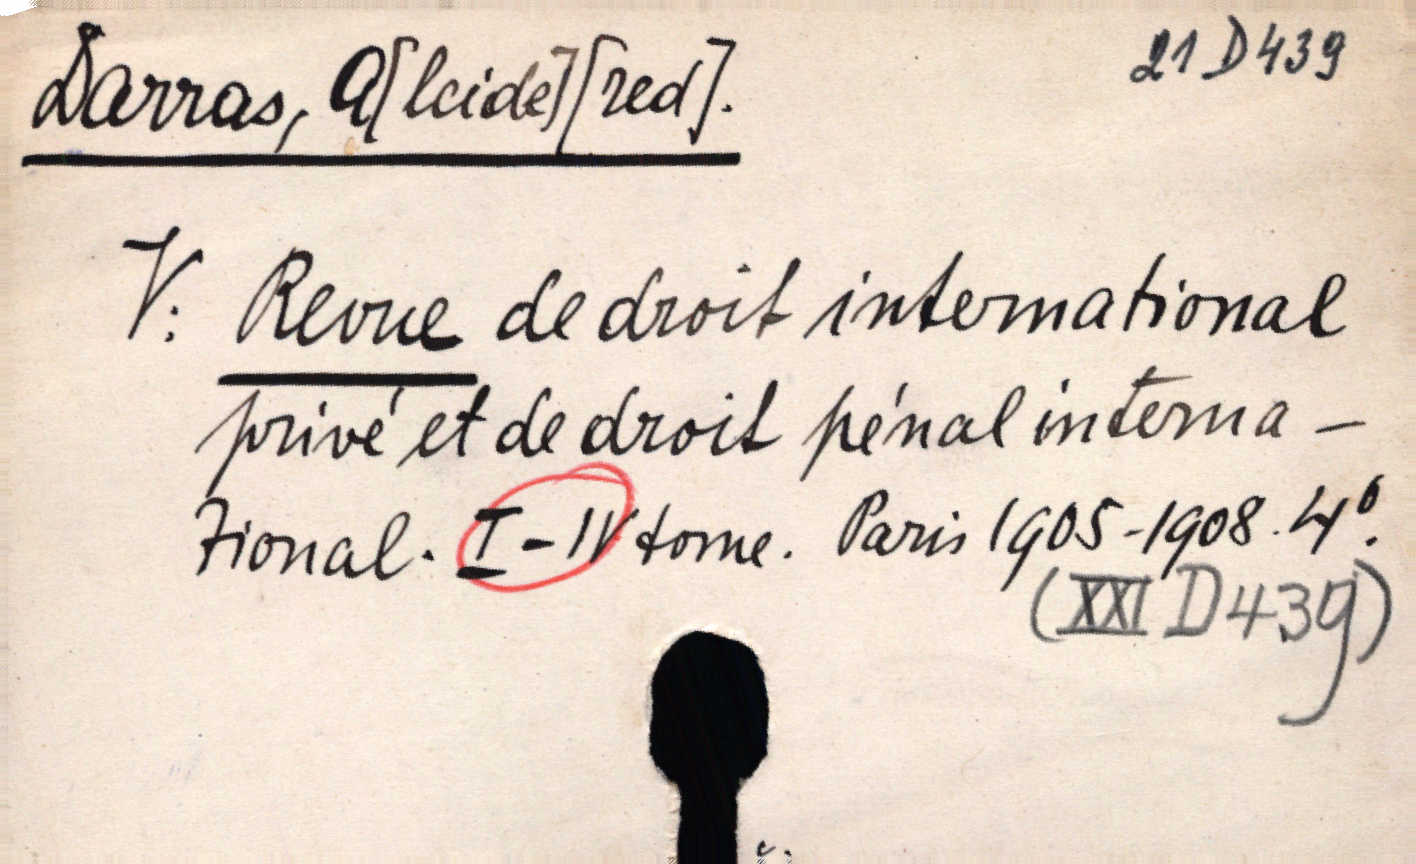 21 D 439
Darras, A[lcide][red].
V: Revue de droit international
privé et de droit pénal interna-
tional. I-IV tome. Paris 1905-1908. 4°.
(XXI D 439)